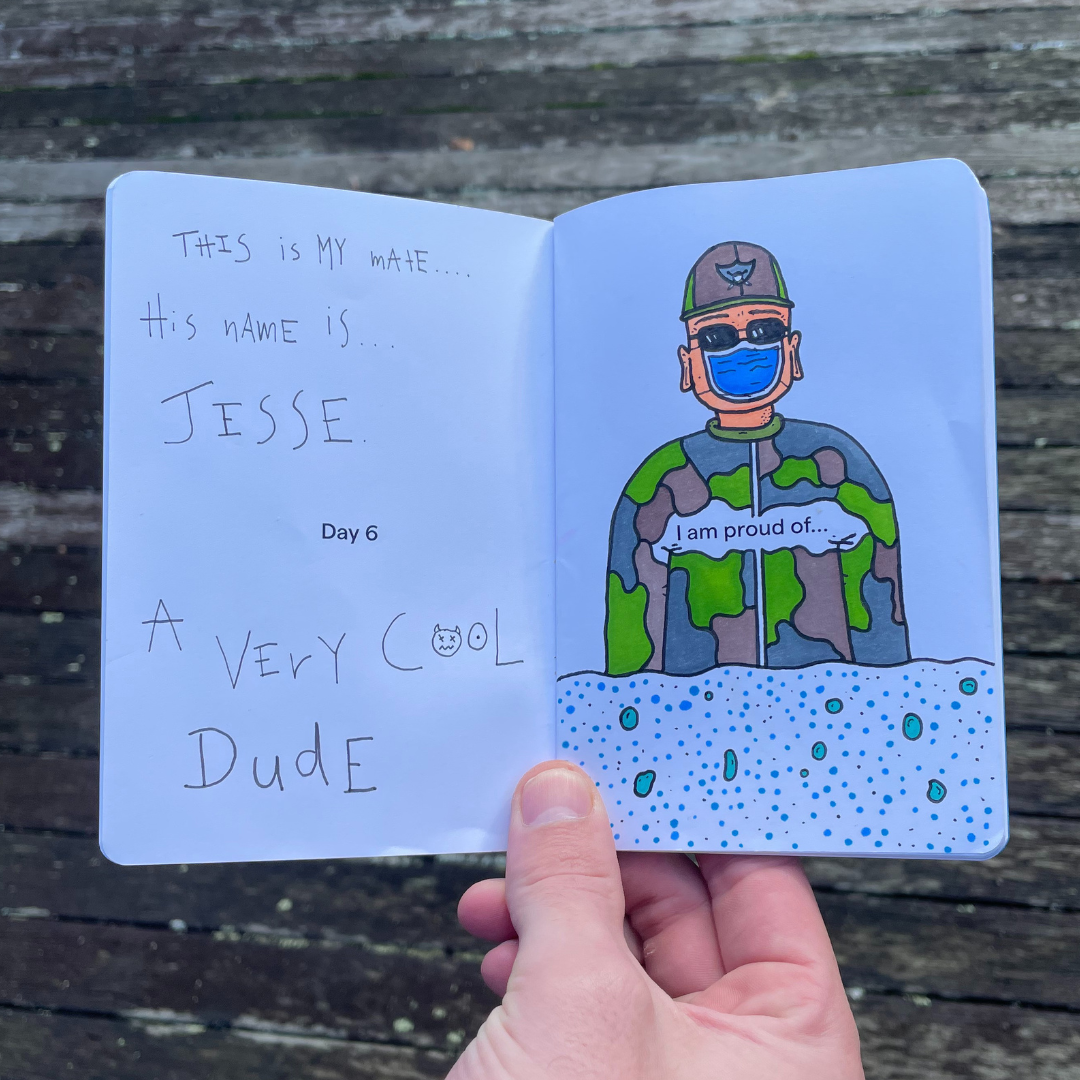 THIS iS MY mAtE....
HiS nAME iS...
JESSE.
Day 6
A VErY COOL
DudE
I am proud of...